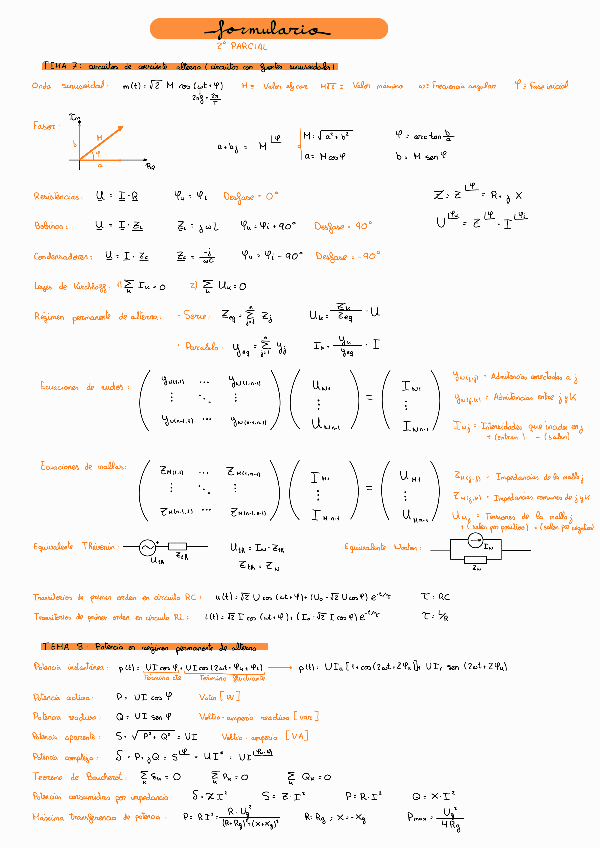 formulario
2º PARCIAL
TEMA 7: circuitos de corriente alterna (circuitos con fuentes sinusoidales)
Onda sinusoidal: m(t) = √2 M cos (ωt + φ) M = Valor eficaz M√2 = Valor máximo ω = Frecuencia angular φ = Fase inicial
2πf = 2π/T
Fasor: Im b M φ a Re
a + bj = M∠φ M = √(a² + b²) φ = arc tan b/a
a = M cos φ b = M sen φ
Resistencias: U = I · R φu = φi Desfase = 0° Z = Z∠φ = R + j X
Bobinas: U = I · ZL ZL = jωL φu = φi + 90° Desfase = 90° U∠φu = Z∠φ · I∠φi
Condensadores: U = I · Zc Zc = -j/ωC φu = φi - 90° Desfase = -90°
Leyes de Kirchhoff: 1) Σ Ik = 0 2) Σ Uk = 0
Régimen permanente de alterna: · Serie: Zeq = Σ Zj Uk = Zk/Zeq · U
· Paralelo: Yeq = Σ Yj Ik = Yk/Yeq · I
Ecuaciones de nudos: YN(1,1) ... YN(1,n-1) UN1 = IN1
YN(n-1,1) ... YN(n-1,n-1) UNn-1 INn-1
YN(j,j) = Admitancias conectadas a j
YN(j,k) = Admitancias entre j y k
INj = Intensidades que inciden en j
+ (entran) - (salen)
Ecuaciones de mallas: ZM(1,1) ... ZM(1,n-1) IM1 = UM1
ZM(n-1,1) ... ZM(n-1,n-1) IMn-1 UMn-1
ZM(j,j) = Impedancias de la malla j
ZM(j,k) = Impedancias comunes de j y k
UMj = Tensiones de la malla j
+ (salen por positivo) - (salen por negativo)
Equivalente Thévenin: Uth Zth Uth = IN · Zth Equivalente Norton: IN ZN
Zth = ZN
Transitorios de primer orden en circuito RC: u(t) = √2 U cos (ωt + φ) + (U0 - √2 U cos φ) e^-t/τ τ = RC
Transitorios de primer orden en circuito RL: i(t) = √2 I cos (ωt + φ) + (I0 - √2 I cos φ) e^-t/τ τ = L/R
TEMA 8: Potencia en régimen permanente de alterna
Potencia instantánea: p(t) = UI cos φ + UI cos (2ωt + φu + φi) → p(t) = UIa [1 + cos (2ωt + 2φu)] + UIr sen (2ωt + 2φu)
Término cte Término fluctuante
Potencia activa: P = UI cos φ Vatio [W]
Potencia reactiva: Q = UI sen φ Voltio-amperio reactivo [var]
Potencia aparente: S = √(P² + Q²) = UI Voltio-amperio [VA]
Potencia compleja: S = P + jQ = S∠φ = UI* = UI∠φu-φi
Teorema de Boucherot: Σ Sk = 0 Σ Pk = 0 Σ Qk = 0
Potencias consumidas por impedancia: S = Z I² S = Z · I² P = R · I² Q = X · I²
Máxima transferencia de potencia: P = R I² = R · Ug² / (R+Rg)² + (X+Xg)² R = Rg ; X = -Xg Pmax = Ug² / 4Rg